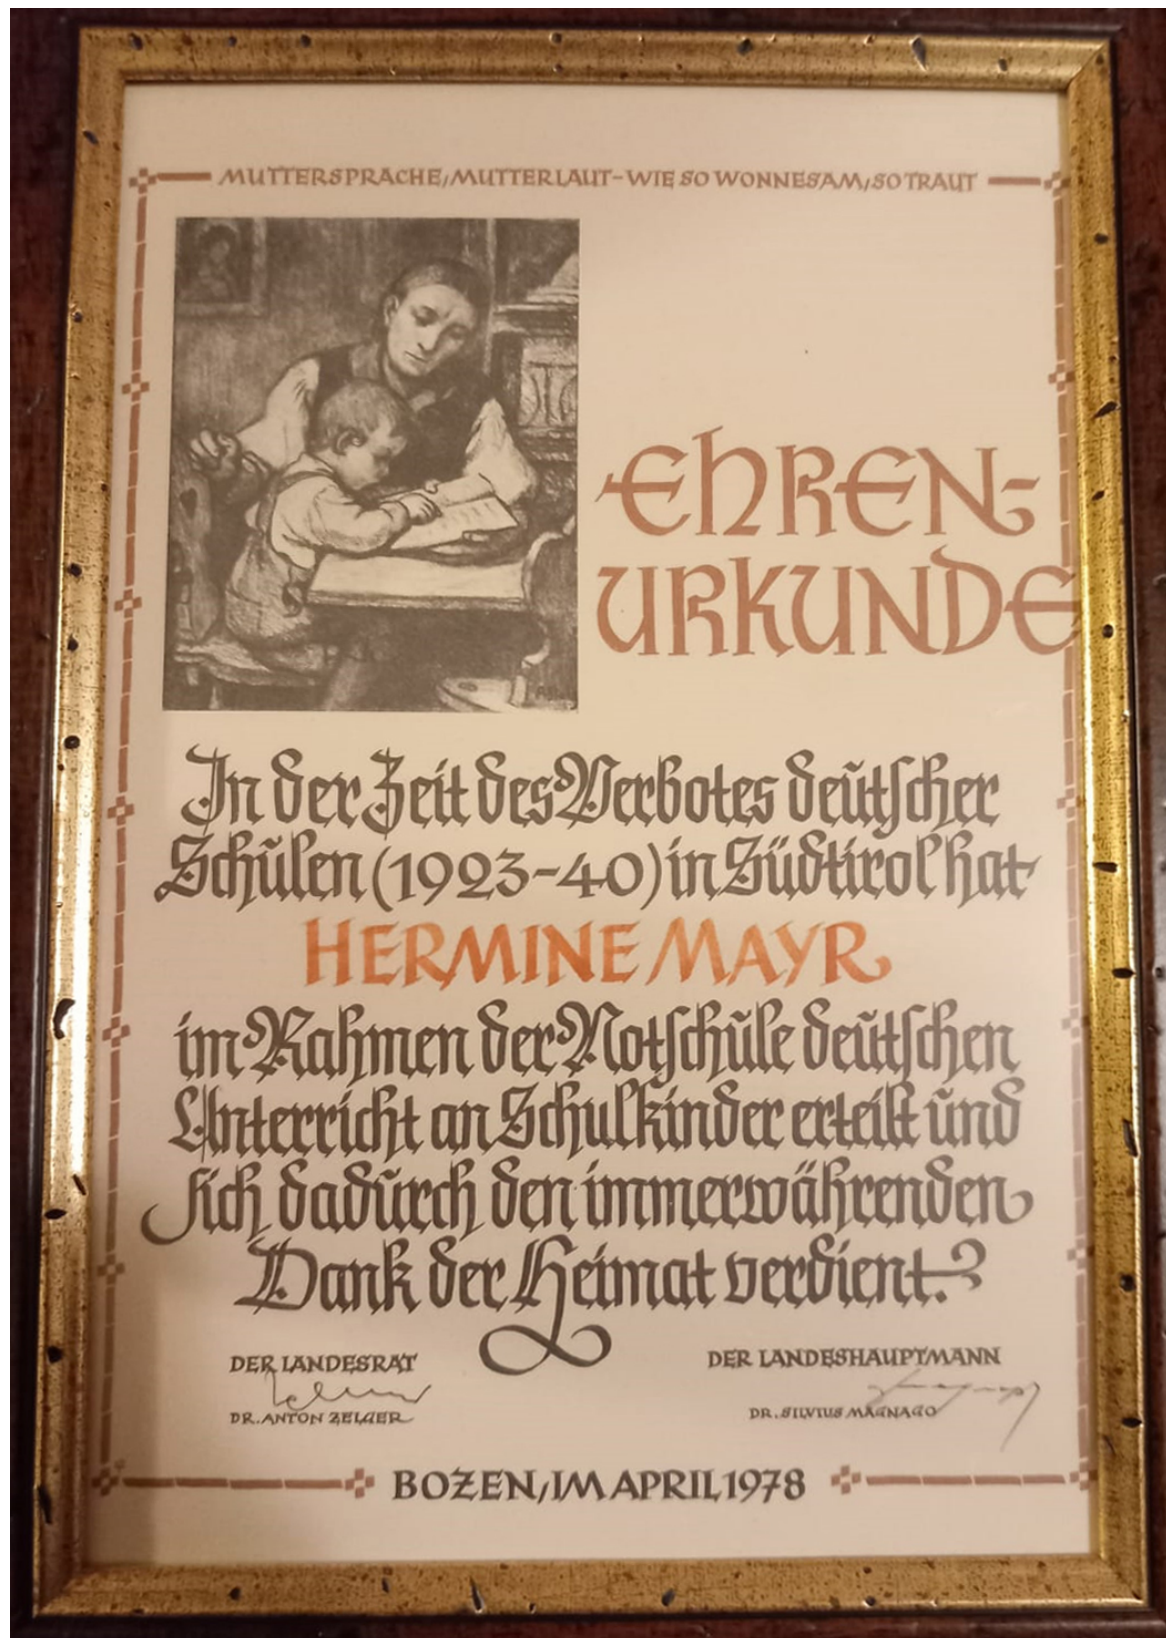 MUTTERSPRACHE, MUTTERLAUT - WIE SO WONNESAM, SO TRAUT
EHREN-
URKUNDE
In der Zeit des Verbotes deutscher
Schulen (1923-40) in Südtirol hat
HERMINE MAYR
im Rahmen der Notschule deutschen
Unterricht an Schulkinder erteilt und
sich dadurch den immerwährenden
Dank der Heimat verdient.
DER LANDESRAT
DR. ANTON ZELGER
DER LANDESHAUPTMANN
DR. SILVIUS MAGNAGO
BOZEN, IM APRIL 1978